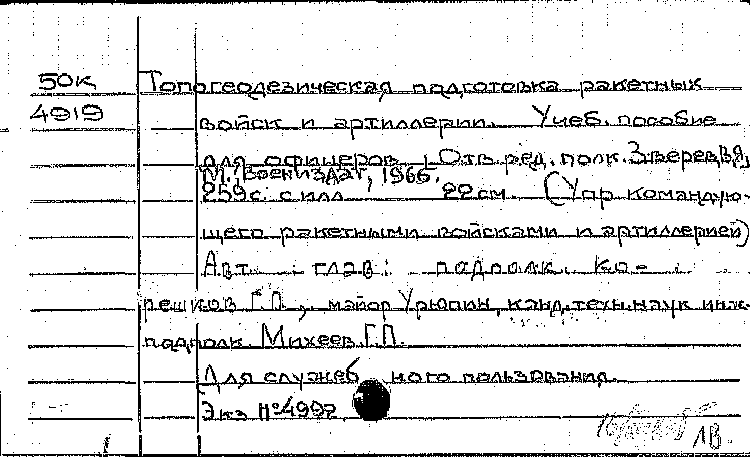 50к Топогеодезическая подготовка ракетных
4919 войск и артиллерии. Учеб. пособие
для офицеров. Отв. ред. полк. Зверев В.Я.
М., Воениздат, 1966.
259 с. с илл. 22 см. (Упр. командую-
щего ракетными войсками и артиллерией)
Авт. глав: подполк. Ко-
решков Г.П., майор Урюпин, канд. техн. наук инж.
подполк. Михеев Г.П.
Для служебного пользования.
Экз №4992
ЛВ